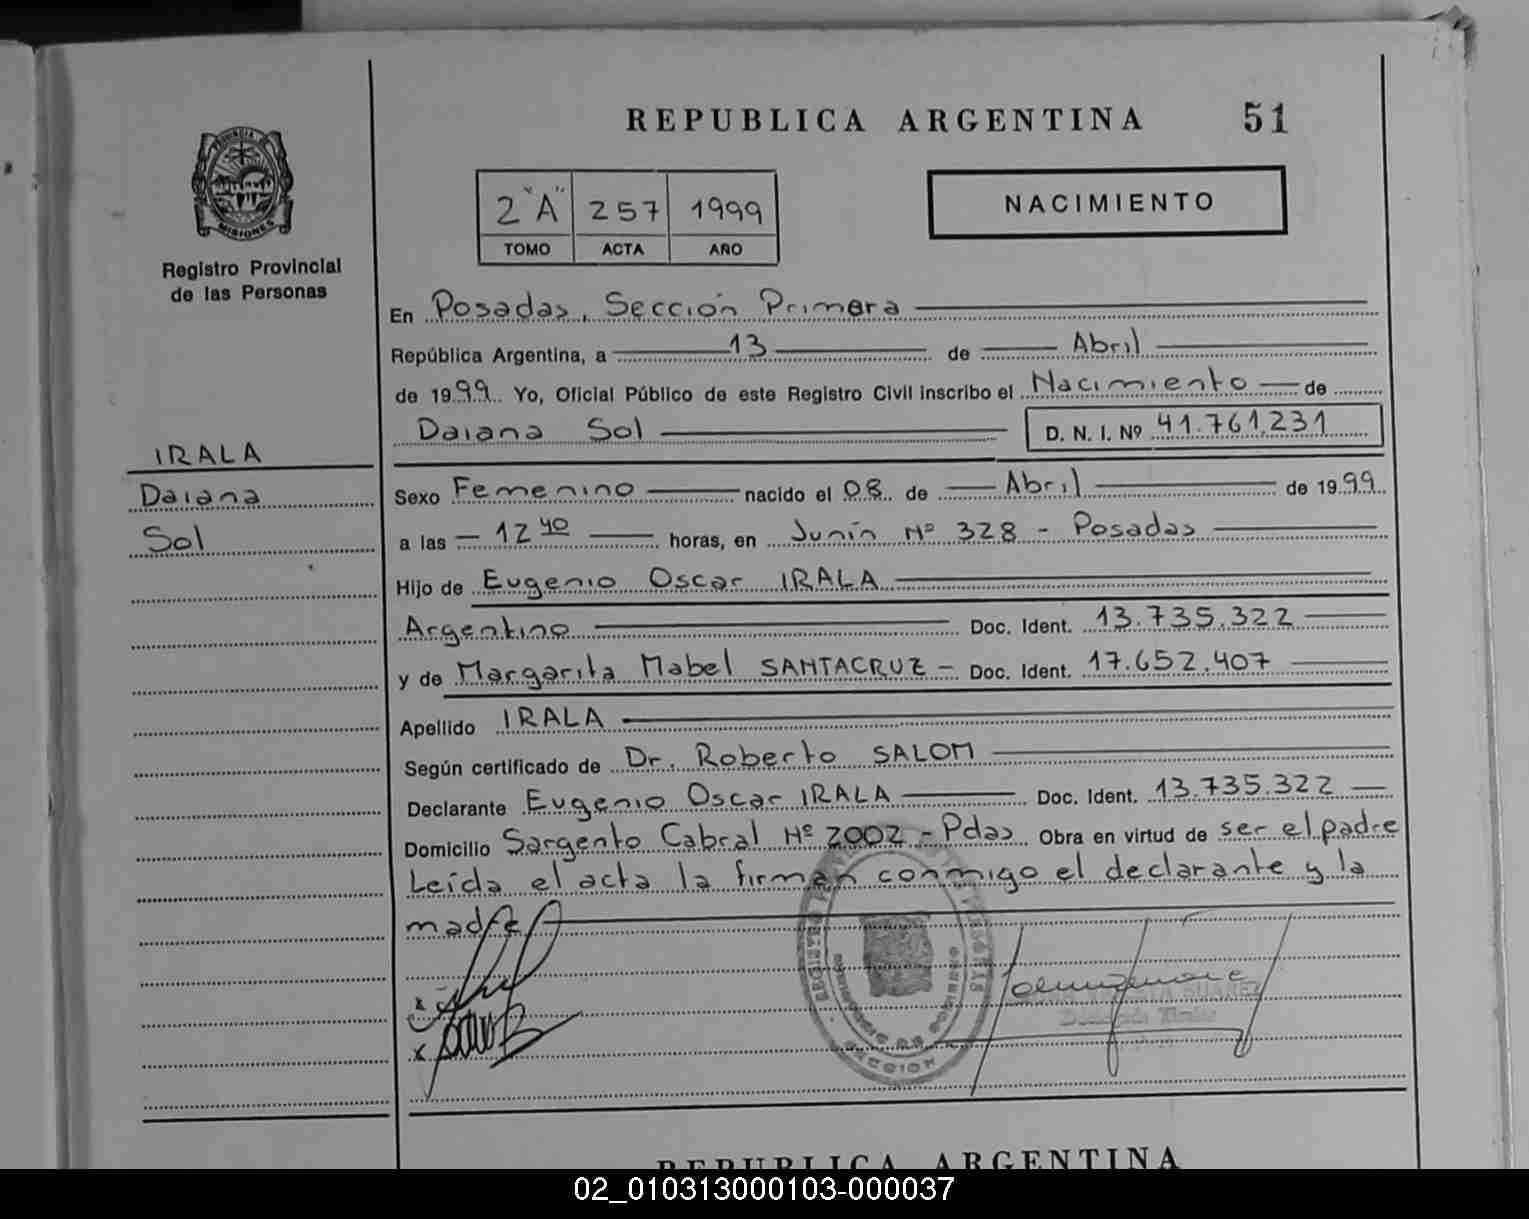 REPUBLICA ARGENTINA 51
PROVINCIA
MISIONES
Registro Provincial
de las Personas
2 "A" 257 1999
TOMO ACTA AÑO
NACIMIENTO
En Posadas, Sección Primera
República Argentina, a 13 de Abril
de 1999 Yo, Oficial Público de este Registro Civil inscribo el Nacimiento de
Daiana Sol D. N. I. Nº 41.761.231
IRALA
Daiana
Sol
Sexo Femenino nacido el 08 de Abril de 1999
a las 12 40 horas, en Junín Nº 328 - Posadas
Hijo de Eugenio Oscar IRALA
Argentino Doc. Ident. 13.735.322
y de Margarita Mabel SANTACRUZ - Doc. Ident. 17.652.407
Apellido IRALA
Según certificado de Dr. Roberto SALOM
Declarante Eugenio Oscar IRALA Doc. Ident. 13.735.322
Domicilio Sargento Cabral Nº 2002 - Pdas Obra en virtud de ser el padre
Leída el acta la firman conmigo el declarante y la
madre
x
x
REGISTRO
SECCION
SUAREZ
REPUBLICA ARGENTINA
02_010313000103-000037